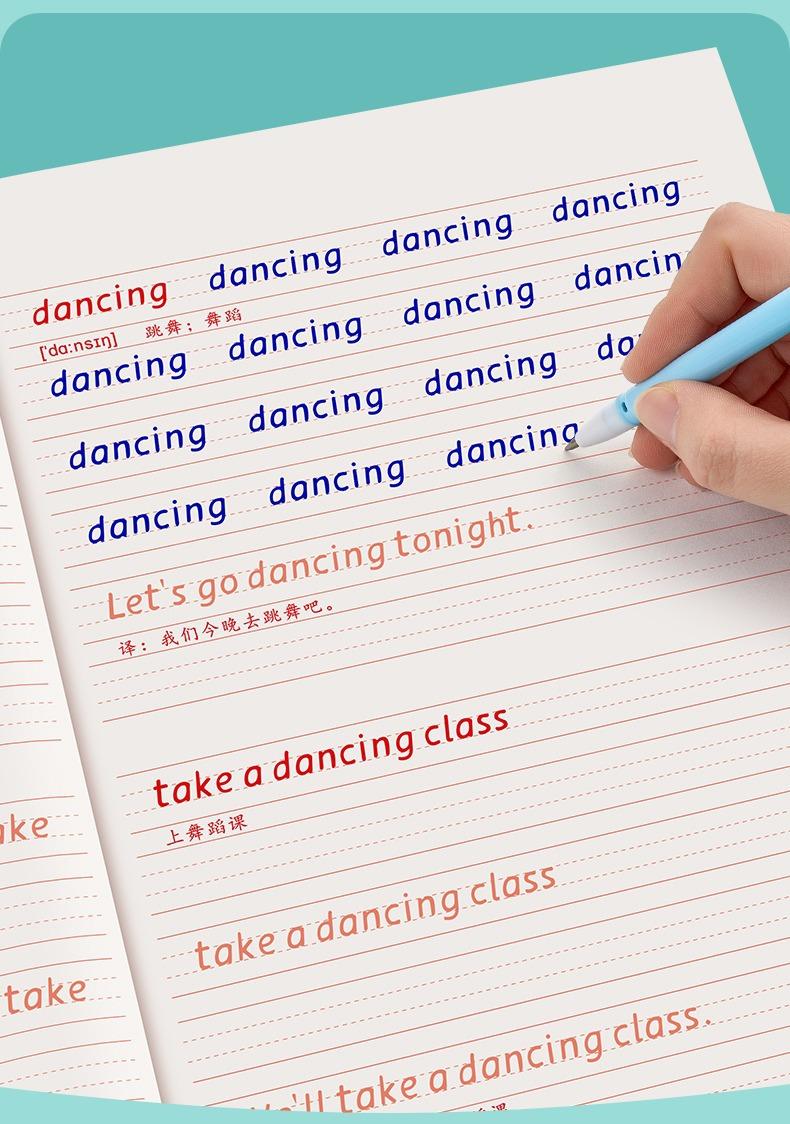 dancing dancing dancing dancing
['dɑːnsɪŋ] 跳舞；舞蹈
dancing dancing dancing
dancing dancing dancing
dancing dancing dancing
Let's go dancing tonight.
译：我们今晚去跳舞吧。
take a dancing class
上舞蹈课
take a dancing class
take a dancing class.
take